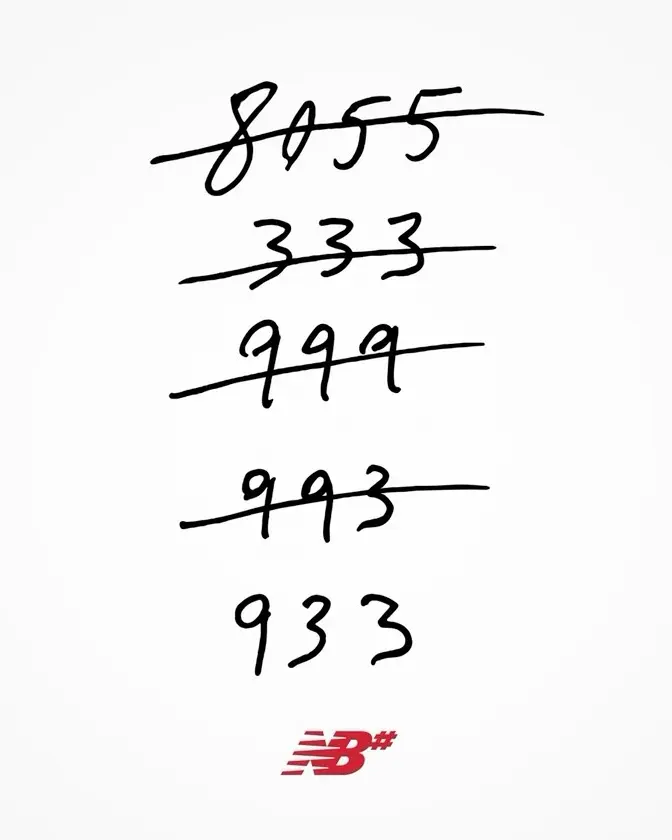 8055
333
999
993
933
NB#